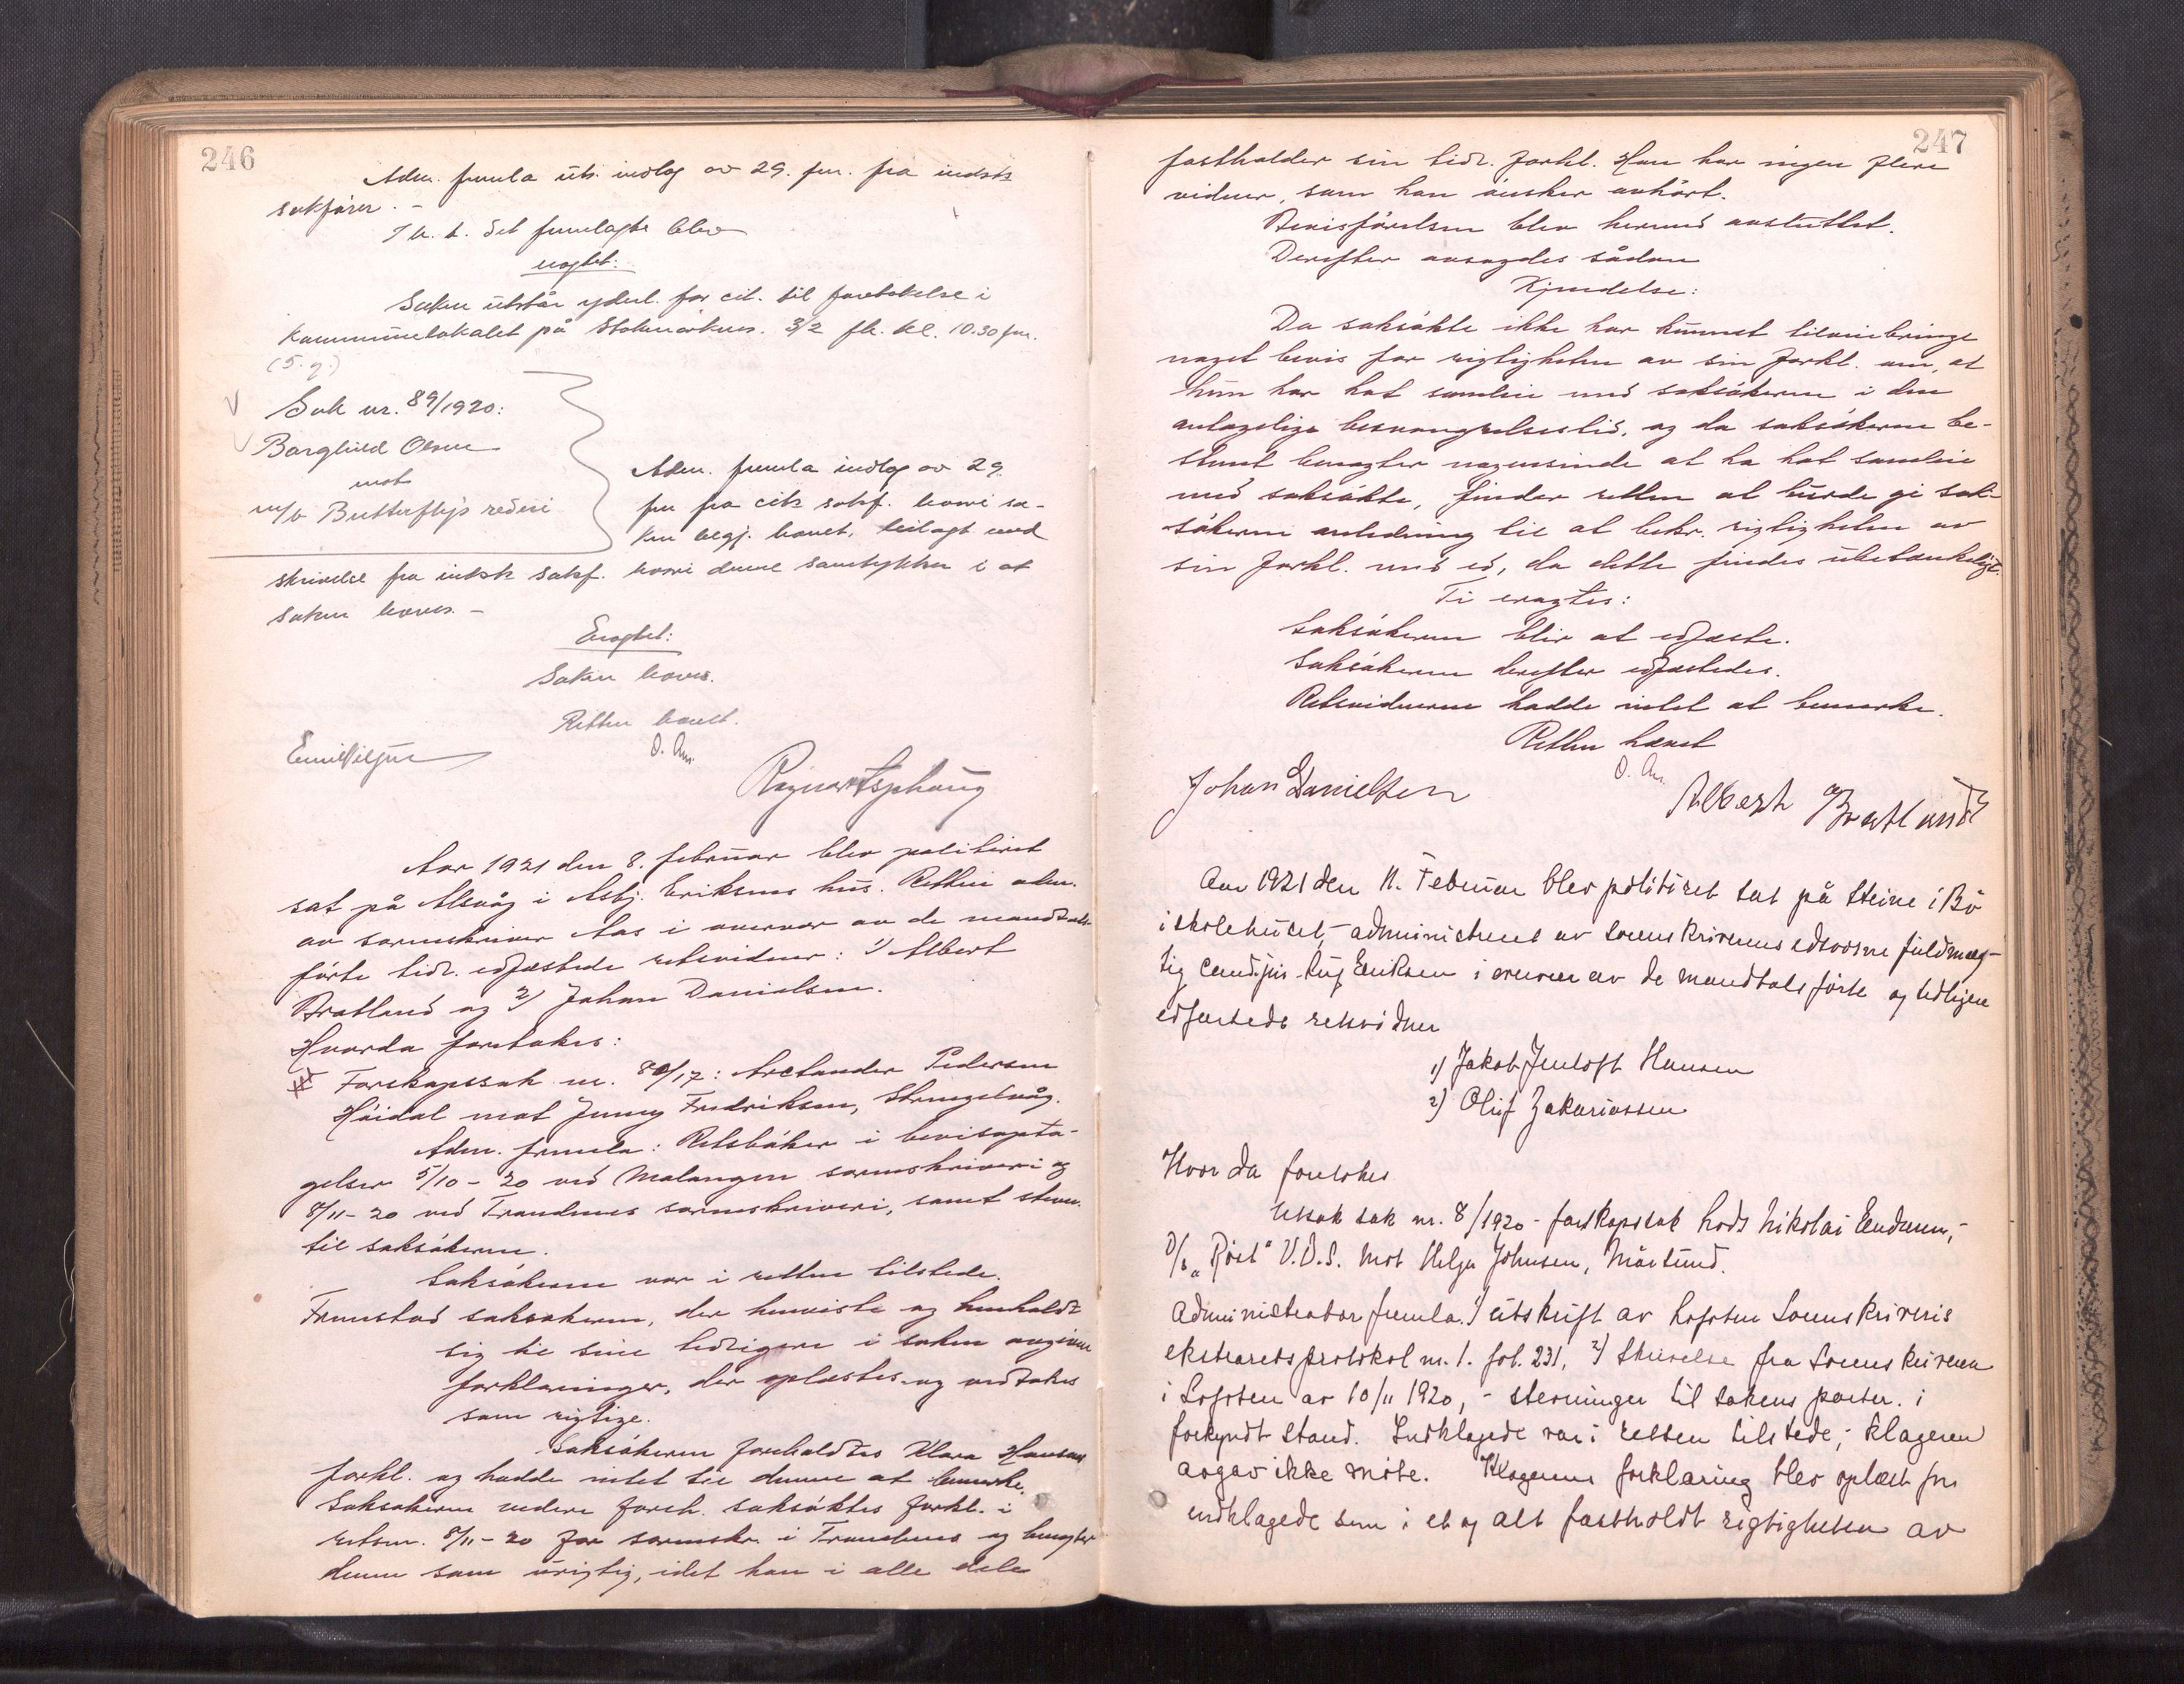 246
Adm. fremla uts. indlæg av 29. fm. fra indst.
sakfører. -
I h. t. det fremlagte blev
eragtet:
Saken utstår yderl. for cit. til foretakelse i
kommunelokalet på Stokmarknes. 3/2 fk. kl. 10.30 fm.
(5. g.)
Sak nr. 89/1920:
Borghild Olsen
mot
m/b Butterfly's rederi
Adm. fremla indlæg av 29.
fm fra cits sakf. hvori sa-
ken begj. hævet, bilagt med
skrivelse fra indst. sakf. hvori denne samtykker i at
saken hæves. -
Eragtet:
Saken hæves.
Retten hævet.
O. Aas.
Emil Nilsen
Ragnar Asphaug
Aar 1921 den 8. februar blev politiret
sat på Alsvåg i Asbj. Eriksens hus. Retten adm.
av sorenskriver Aas i overvær av de mandtals-
førte tidl. edfæstede retsvidner: 1/ Albert
Bratland og 2/ Johan Danielsen.
Hvorda foretokes:
Farskapssak nr. 80/17: Arctander Pedersen
Høidal mot Jenny Fredriksen, Strengelvåg.
Adm. fremla: Retsbøker i bevisopta-
gelser 5/10-20 ved Malangen sorenskriveri og
8/11-20 ved Trondenes sorenskriveri, samt stevn.
til saksøkeren.
Saksøkeren var i retten tilstede.
Fremstod saksøkeren, der henviste og henholdt
sig til sine tidligere i saken avgivne
forklaringer, der oplæstes og vedtokes
som rigtige.
Saksøkeren foreholdtes Klara Hansens
forkl. og hadde intet til denne at bemerke.
Saksøkeren videre foreh. saksøktes forkl. i
retsm. 8/11-20 for sorenskr. i Trondenes og benegter
denne som urigtig, idet han i alle dele
247
fastholder sin tidl. forkl. Han har ingen flere
vidner, som han ønsker avhørt.
Bevisførelsen blev hermed avsluttet.
Derefter avsagdes sådan
Kjendelse:
Da saksøkte ikke har kunnet tilveiebringe
noget bevis for rigtigheten av sin forkl. om, at
hun har hat samleie med saksøkeren i den
antagelige besvangrelsestid, og da saksøkeren be-
stemt benegter nogensinde at ha hat samleie
med saksøkte, finder retten at burde gi sak-
søkeren anledning til at bekr. rigtigheten av
sin forkl. med ed, da dette findes ubetænkelig.
Ti eragtes:
Saksøkeren blir at edfæste.
Saksøkeren derefter edfæstedes.
Retsvidnerne hadde intet at bemerke.
Retten hævet
O. Aas.
Johan Danielsen
Albert Bratland
Aar 1921 den 11. Februar blev politiret sat på Steine i Bø
i skolehuset, - administreret av sorenskriverens edsvorne fuldmæg-
tig cand. jur. Aug. Eriksen i overvær av de mandtalsførte og tidligere
edfæstede retsvidner
1) Jakob Jentoft Hansen
2) Oluf Zakariassen
Hvor da foretokes
Utsak sak nr. 8/1920 - farskapssak hods Nikolai Endresen, -
D/b „Røst" V.D.S. mot Helga Johnsen, Mårsund.
Administrator fremla 1) utskrift av Lofoten Sorenskriveris
ekstraretsprotokol nr. 1. fol. 231, 2) Skrivelse fra Sorenskriveren
i Lofoten av 10/11 1920, - stevninger til sakens parter. i
forkyndt stand. Indklagede var i retten tilstede; klageren
avgav ikke møte. Klagerens forklaring blev oplæst for
indklagede som i et og alt fastholdt rigtigheten av